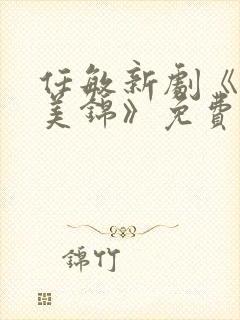 任敏新劇《
美錦》免費
錦竹